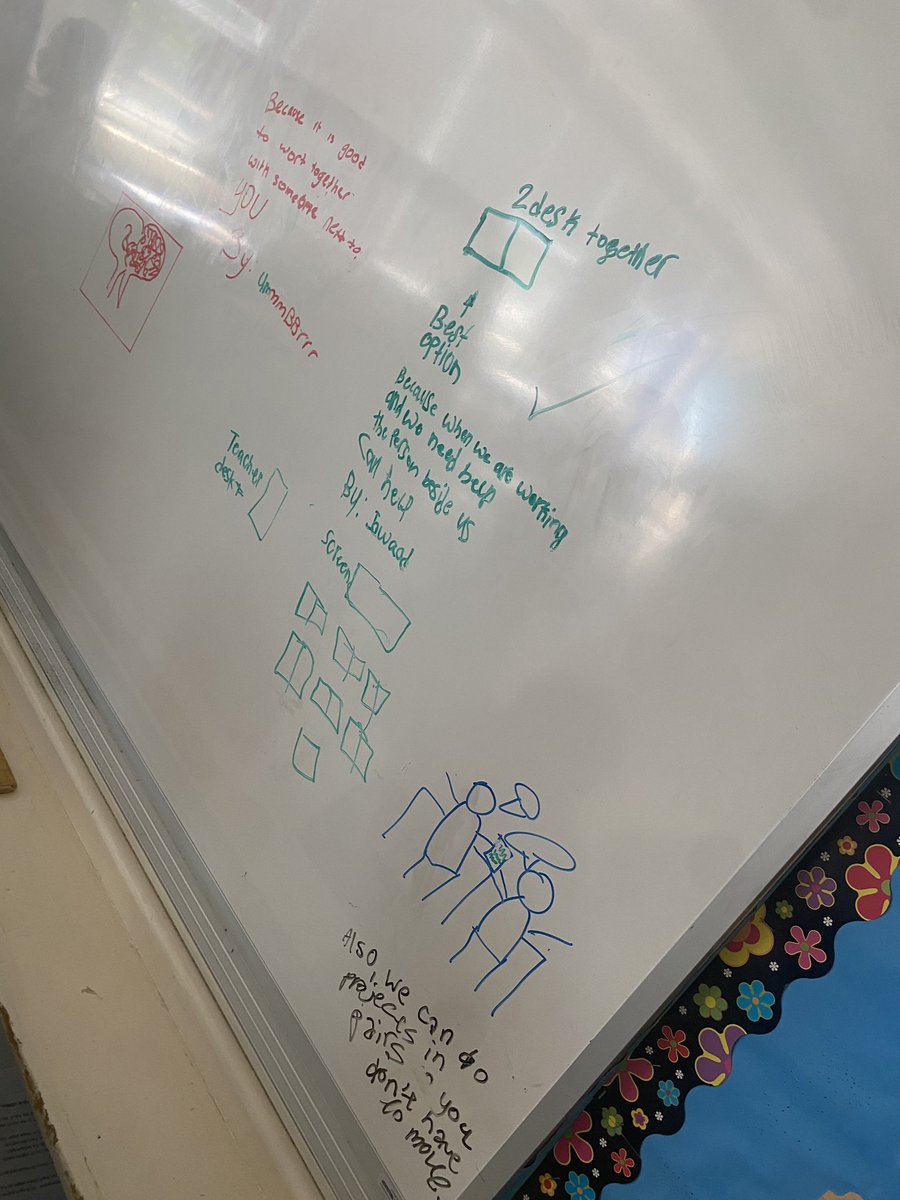 Because it is good
to wort together
with someone next to
you
By: ummmBBrrr
2 desk together
Best
option
Because when we are working
and we need help
the Person beside us
Can help
By: Jawaad
Teacher
desk
Screen
Also, we can do
projects in
pairs, you
don't have
to move.